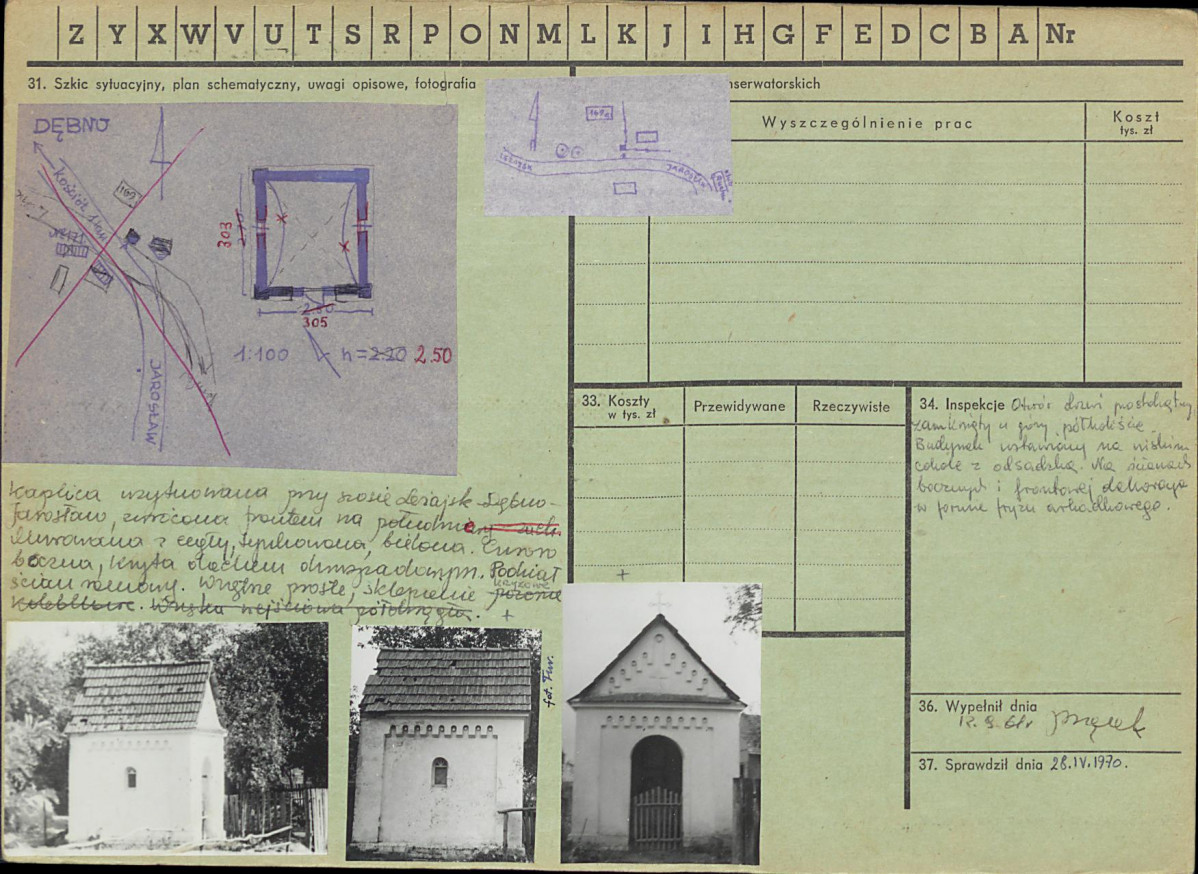 Z Y X W V U T S R P O N M L K J I H G F E D C B A Nr
31. Szkic sytuacyjny, plan schematyczny, uwagi opisowe, fotografia
nserwatorskich
Wyszczególnienie prac
Koszt
tys. zł
DĘBNO
Kościół
JAROSŁAW
303
2.80
305
1:100 h = 2.20 2.50
LEŻAJSK
JAROSŁAW
Kaplica usytuowana przy szosie Leżajsk-Dębno-
Jarosław, zwrócona frontem na południe
Murowana z cegły, tynkowana, biclona.
boczna, kryta dachem dwuspadowym. Podział
ścian ramowy. Wnętrze proste, sklepienie pozorne
krzyżowe
kolebkowe. Wnęka wejściowa półokrągła. +
fot. Tur.
33. Koszty
w tys. zł
Przewidywane
Rzeczywiste
+
34. Inspekcje Otwór drzwi prostokątny
zamknięty u góry półkoliście.
Budynek ustawiony na niskim
cokole z odsadzką. Na ścianach
bocznych i frontowej dekoracja
w formie fryzu arkadkowego.
36. Wypełnił dnia
12. 9. 61r
37. Sprawdził dnia 28.IV.1970.